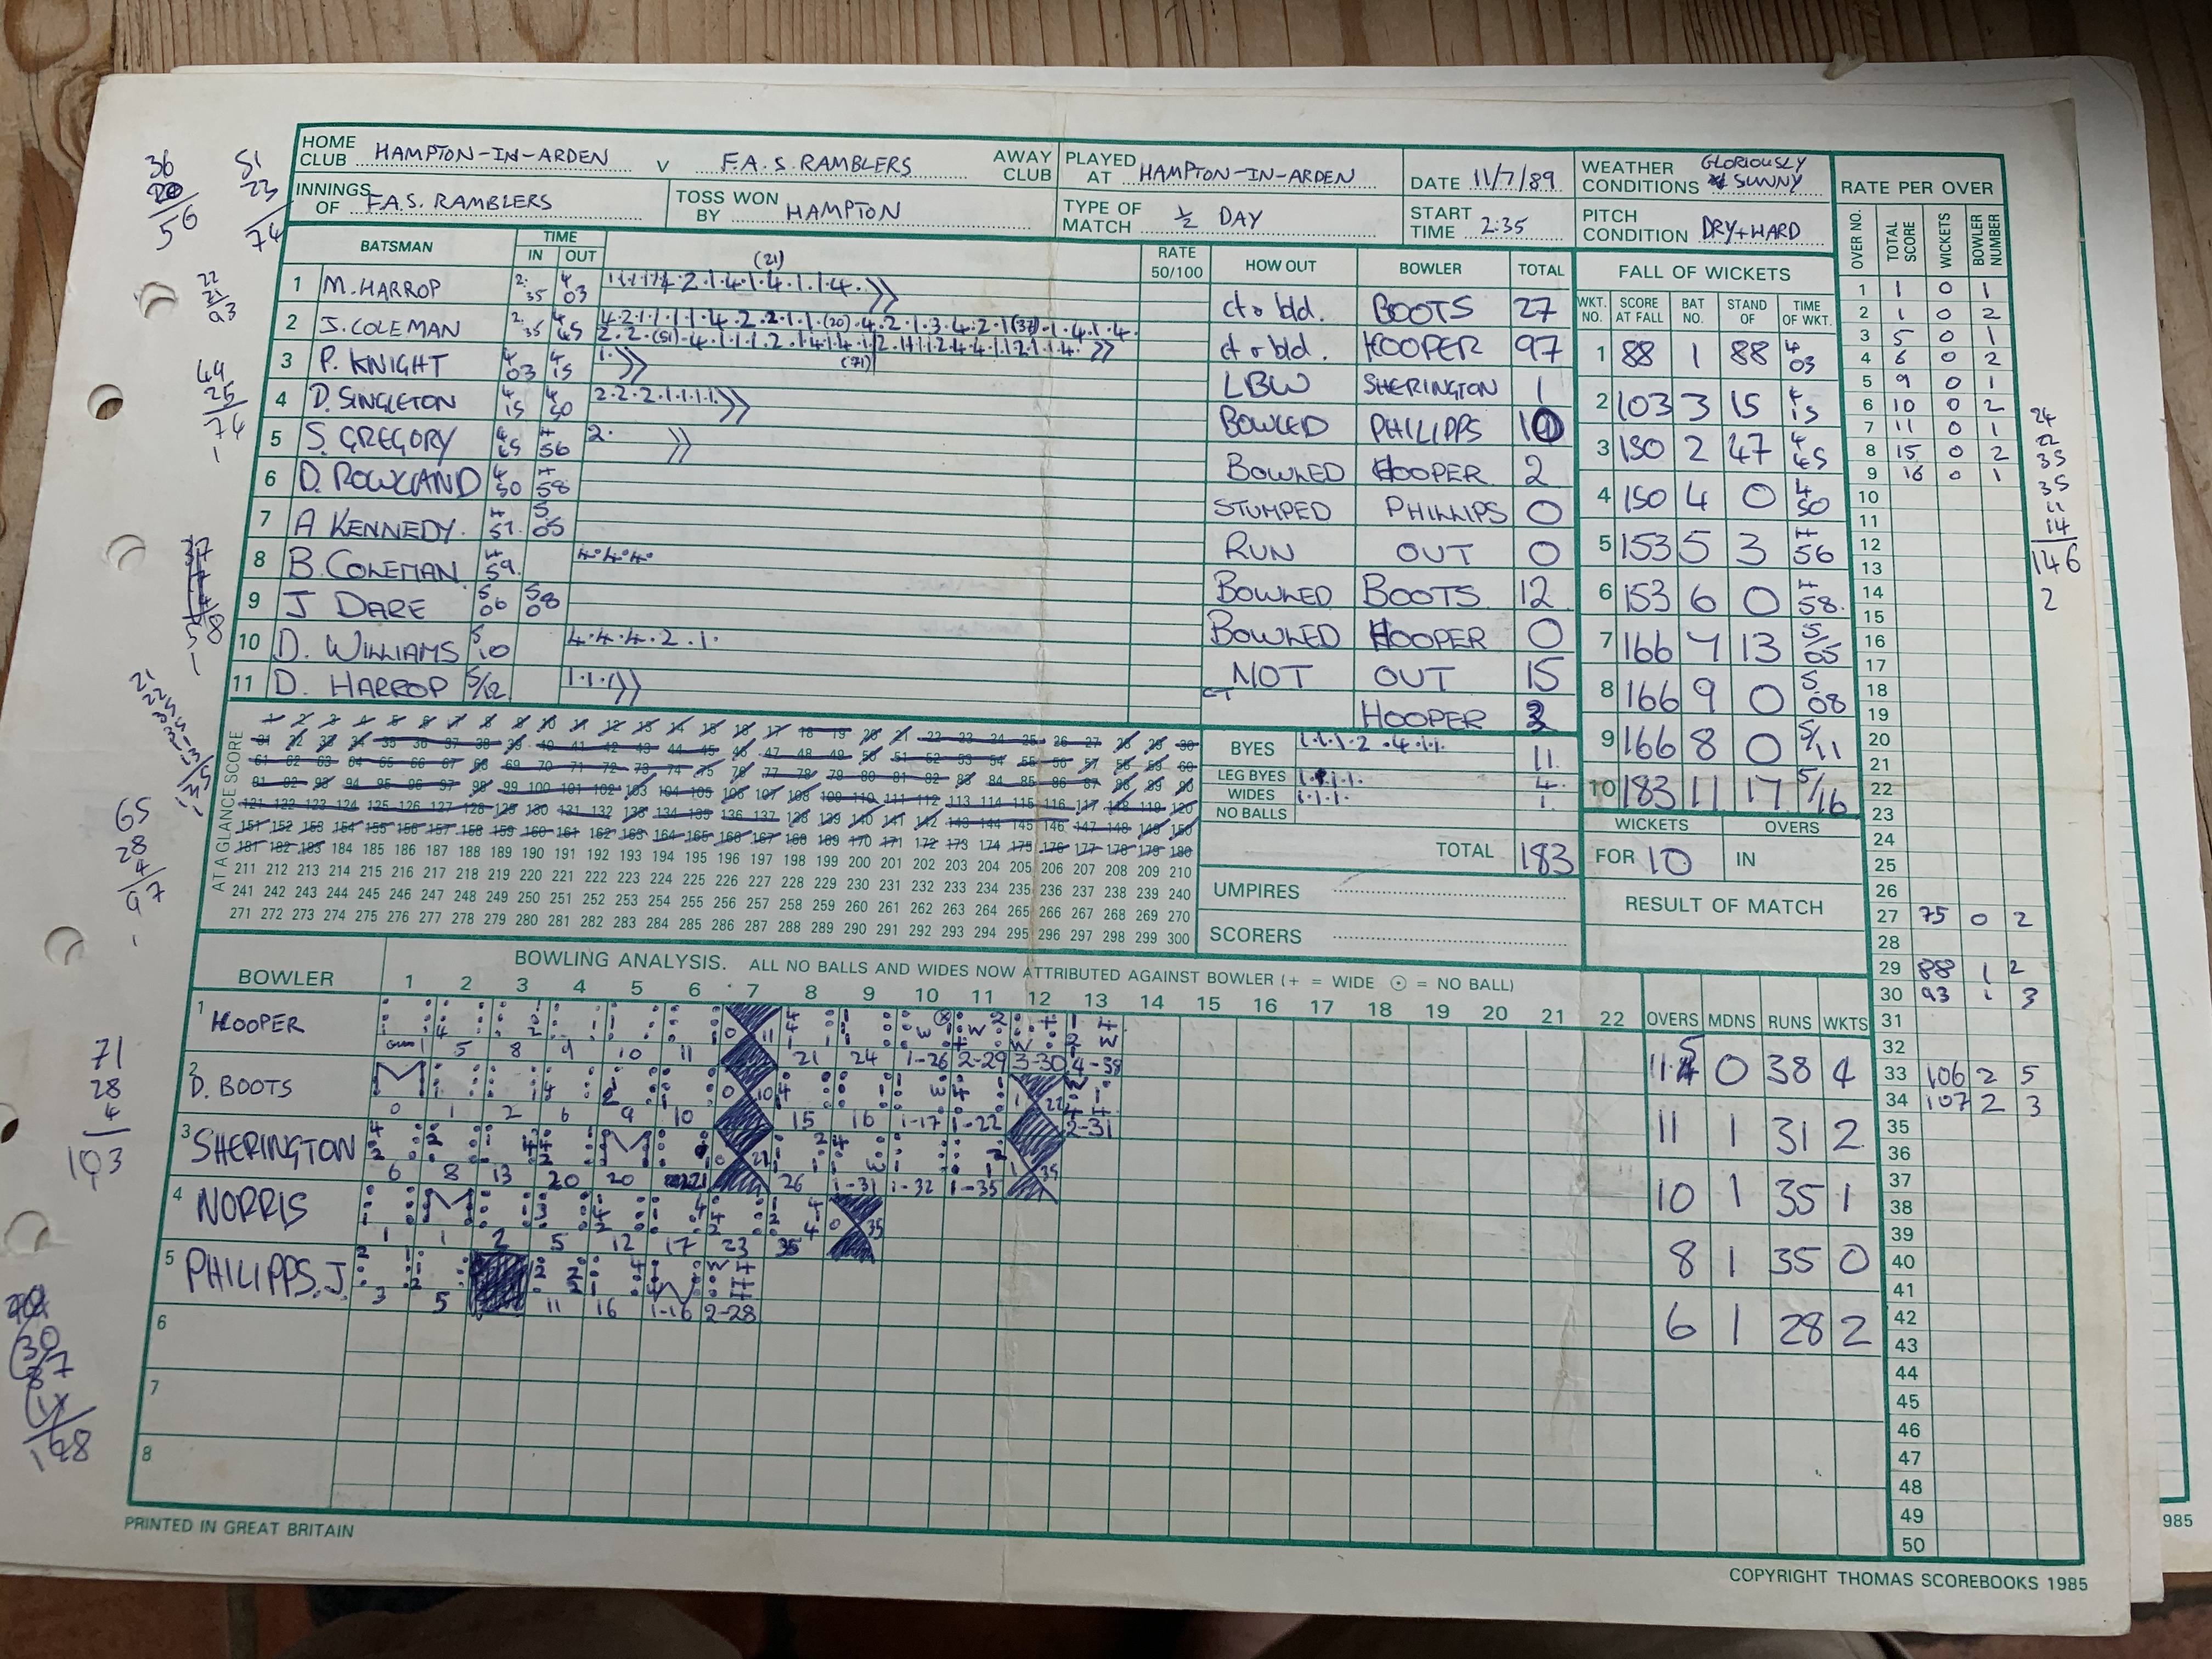 HOME CLUB HAMPTON-IN-ARDEN V F.A.S. RAMBLERS AWAY CLUB
PLAYED AT HAMPTON-IN-ARDEN DATE 11/7/89
WEATHER CONDITIONS GLORIOUSLY SUNNY
INNINGS OF F.A.S. RAMBLERS TOSS WON BY HAMPTON
TYPE OF MATCH ½ DAY START TIME 2:35
PITCH CONDITION DRY+HARD
BATSMAN TIME IN OUT RATE 50/100 HOW OUT BOWLER TOTAL
(21)
1 M. HARROP 2.35 4 03 ct & bld. BOOTS 27
2 J. COLEMAN 2.35 4 45 ct & bld. HOOPER 97
3 P. KNIGHT 4 03 4 15 1. LBW SHERINGTON 1
4 D. SINGLETON 4 15 4 50 2.2.2.1.1.1.1. BOWLED PHILIPPS 10
5 S. GREGORY 4 45 4 56 2. BOWLED HOOPER 2
6 D. ROWLAND 4 50 4 58 STUMPED PHILLIPS 0
7 A KENNEDY. 4 57. 5 05 RUN OUT 0
8 B. COLEMAN 4 59. 4.4.4. BOWLED BOOTS 12
9 J DARE 5 06 5 08 BOWLED HOOPER 0
10 D. WILLIAMS 5 10 4.4.4.2.1. NOT OUT 15
11 D. HARROP 5/12 1.1.1 CT HOOPER 3
FALL OF WICKETS
WKT. NO. SCORE AT FALL BAT NO. STAND OF TIME OF WKT.
1 88 1 88 4 03
2 103 3 15 4 15
3 150 2 47 4 45
4 150 4 0 4 50
5 153 5 3 4 56
6 153 6 0 4 58.
7 166 7 13 5/05
8 166 9 0 5 08
9 166 8 0 5/11
10 183 11 17 5/16
WICKETS OVERS
FOR 10 IN
RESULT OF MATCH
AT A GLANCE SCORE
1 2 3 4 5 6 7 8 9 10 11 12 13 14 15 16 17 18 19 20 21 22 23 24 25 26 27 28 29 30
31 32 33 34 35 36 37 38 39 40 41 42 43 44 45 46 47 48 49 50 51 52 53 54 55 56 57 58 59 60
61 62 63 64 65 66 67 68 69 70 71 72 73 74 75 76 77 78 79 80 81 82 83 84 85 86 87 88 89 90
91 92 93 94 95 96 97 98 99 100 101 102 103 104 105 106 107 108 109 110 111 112 113 114 115 116 117 118 119 120
121 122 123 124 125 126 127 128 129 130 131 132 133 134 135 136 137 138 139 140 141 142 143 144 145 146 147 148 149 150
151 152 153 154 155 156 157 158 159 160 161 162 163 164 165 166 167 168 169 170 171 172 173 174 175 176 177 178 179 180
181 182 183 184 185 186 187 188 189 190 191 192 193 194 195 196 197 198 199 200 201 202 203 204 205 206 207 208 209 210
211 212 213 214 215 216 217 218 219 220 221 222 223 224 225 226 227 228 229 230 231 232 233 234 235 236 237 238 239 240
241 242 243 244 245 246 247 248 249 250 251 252 253 254 255 256 257 258 259 260 261 262 263 264 265 266 267 268 269 270
271 272 273 274 275 276 277 278 279 280 281 282 283 284 285 286 287 288 289 290 291 292 293 294 295 296 297 298 299 300
BYES 1.1.1.2.4.1.1. 11.
LEG BYES 4.
WIDES 1.1.1. 1
NO BALLS
TOTAL 183
UMPIRES
SCORERS
BOWLER BOWLING ANALYSIS. ALL NO BALLS AND WIDES NOW ATTRIBUTED AGAINST BOWLER (+ = WIDE ⊙ = NO BALL)
1 2 3 4 5 6 7 8 9 10 11 12 13 14 15 16 17 18 19 20 21 22 OVERS MDNS RUNS WKTS
1 HOOPER 5 8 9 10 11 21 24 1-26 2-29 3-30 4-38 0 38 4
2 D. BOOTS M 0 1 2 6 9 10 15 16 1-17 1-22 2-31 11 1 31 2
3 SHERINGTON 6 8 13 20 20 21 26 1-31 1-32 1-35 10 1 35 1
4 NORRIS 1 1 2 5 12 17 23 35 8 1 35 0
5 PHILIPPS. J. 3 5 11 16 1-16 2-28 6 1 28 2
6
7
8
RATE PER OVER
OVER NO. TOTAL SCORE WICKETS BOWLER NUMBER
1 1 0 1
2 1 0 2
3 5 0 1
4 6 0 2
5 9 0 1
6 10 0 2
7 11 0 1
8 15 0 2
9 16 0 1
10
11
12
13
14
15
16
17
18
19
20
21
22
23
24
25
26
27 75 0 2
28
29 88 1 2
30 93 1 3
31
32
33 106 2 5
34 107 2 3
35
36
37
38
39
40
41
42
43
44
45
46
47
48
49
50
36
20
56
51
23
74
22
21
93
49
25
74
1
65
28
4
97
71
28
4
103
24
22
33
35
11
14
146
2
PRINTED IN GREAT BRITAIN
COPYRIGHT THOMAS SCOREBOOKS 1985
985